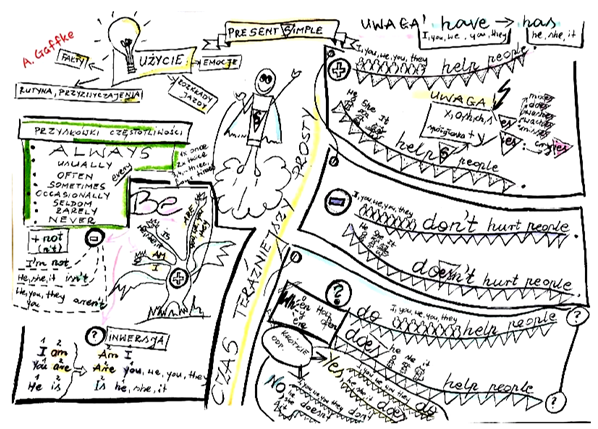 A. Gaffke
FAKTY
UŻYCIE:
EMOCJE
RUTYNA, PRZYZWYCZAJENIA
ROZKŁADY
JAZDY
PRESENT SIMPLE
UWAGA! have → has
I, you, we, you, they
he, she, it
PRZYSŁÓWKI CZĘSTOTLIWOŚCI
ALWAYS
USUALLY
OFTEN
SOMETIMES
OCCASIONALLY
SELDOM
RARELY
NEVER
every
once
twice
S
CZAS TERAŹNIEJSZY PROSTY
+
I, you, we, you, they
help people.
UWAGA
He She It
helps people.
yes
Be
+
AM
I
-
+ not
(n't)
I'm not
He, she, it isn't
We, you, they aren't
you
?
INWERSJA
1 2
I am
You are
He is
Am I
Are you, we, you, they
Is he, she, it
-
I, you, we, you, they
don't hurt people.
He She It
doesn't hurt people.
?
How
Why
often
do
I, you, we, you, they
help people
?
does
he she it
help people
?
KRÓTKIE
ODP.
Yes
do
does
No
don't
doesn't